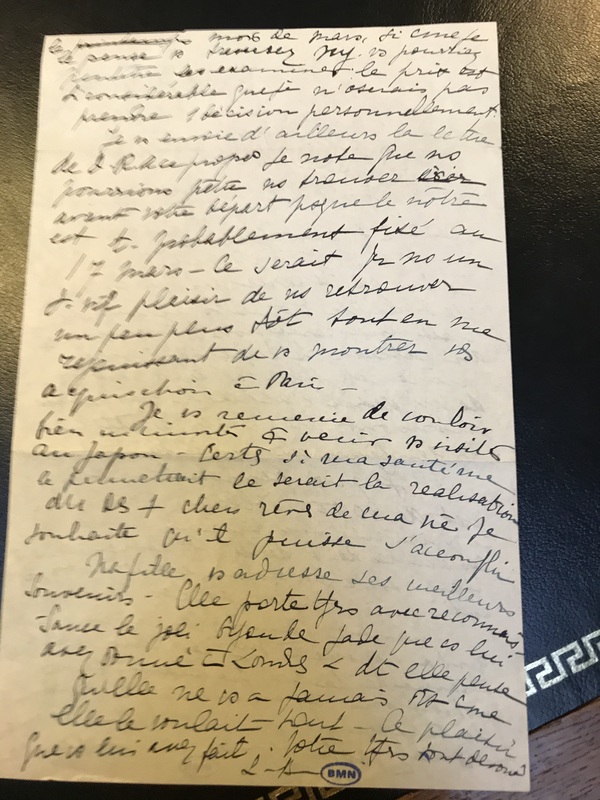 le mois de mars, si come je
le pense vs trouvez vs pourriez
peutêtre les examiner le prix est
si considérable que je n'oserais pas
prendre 1 décision personnellement.
Je vs envoie d'ailleurs la lettre
de à ce propos Je note que ns
pourrions ns trouver
avant votre départ pqsque le nôtre
est t. probablement fixé au
17 mars - Ce serait pr ns un
t. vif plaisir de vs retrouver
un peu plus tôt tout en me
réjouissant de vs montrer vs
acquisitions à Paris -
Je vs remercie de vouloir
bien m'inviter à venir vs visiter
au Japon - Certes si ma santé me
le permettait ce serait la réalisation
du + cher rêve de ma vie Je
souhaite qu'il puisse s'accomplir
Ma fille vs adresse ses meilleurs
souvenirs - Elle porte tjrs avec reconnais-
sance le joli bijou de jade que vs lui
avez donné à Londres & dt elle pense
qu'elle ne vs a jamais dit come
elle le voulait tout - Ce plaisir
que vs lui avez fait. Votre tjrs tout dévoué
BMN